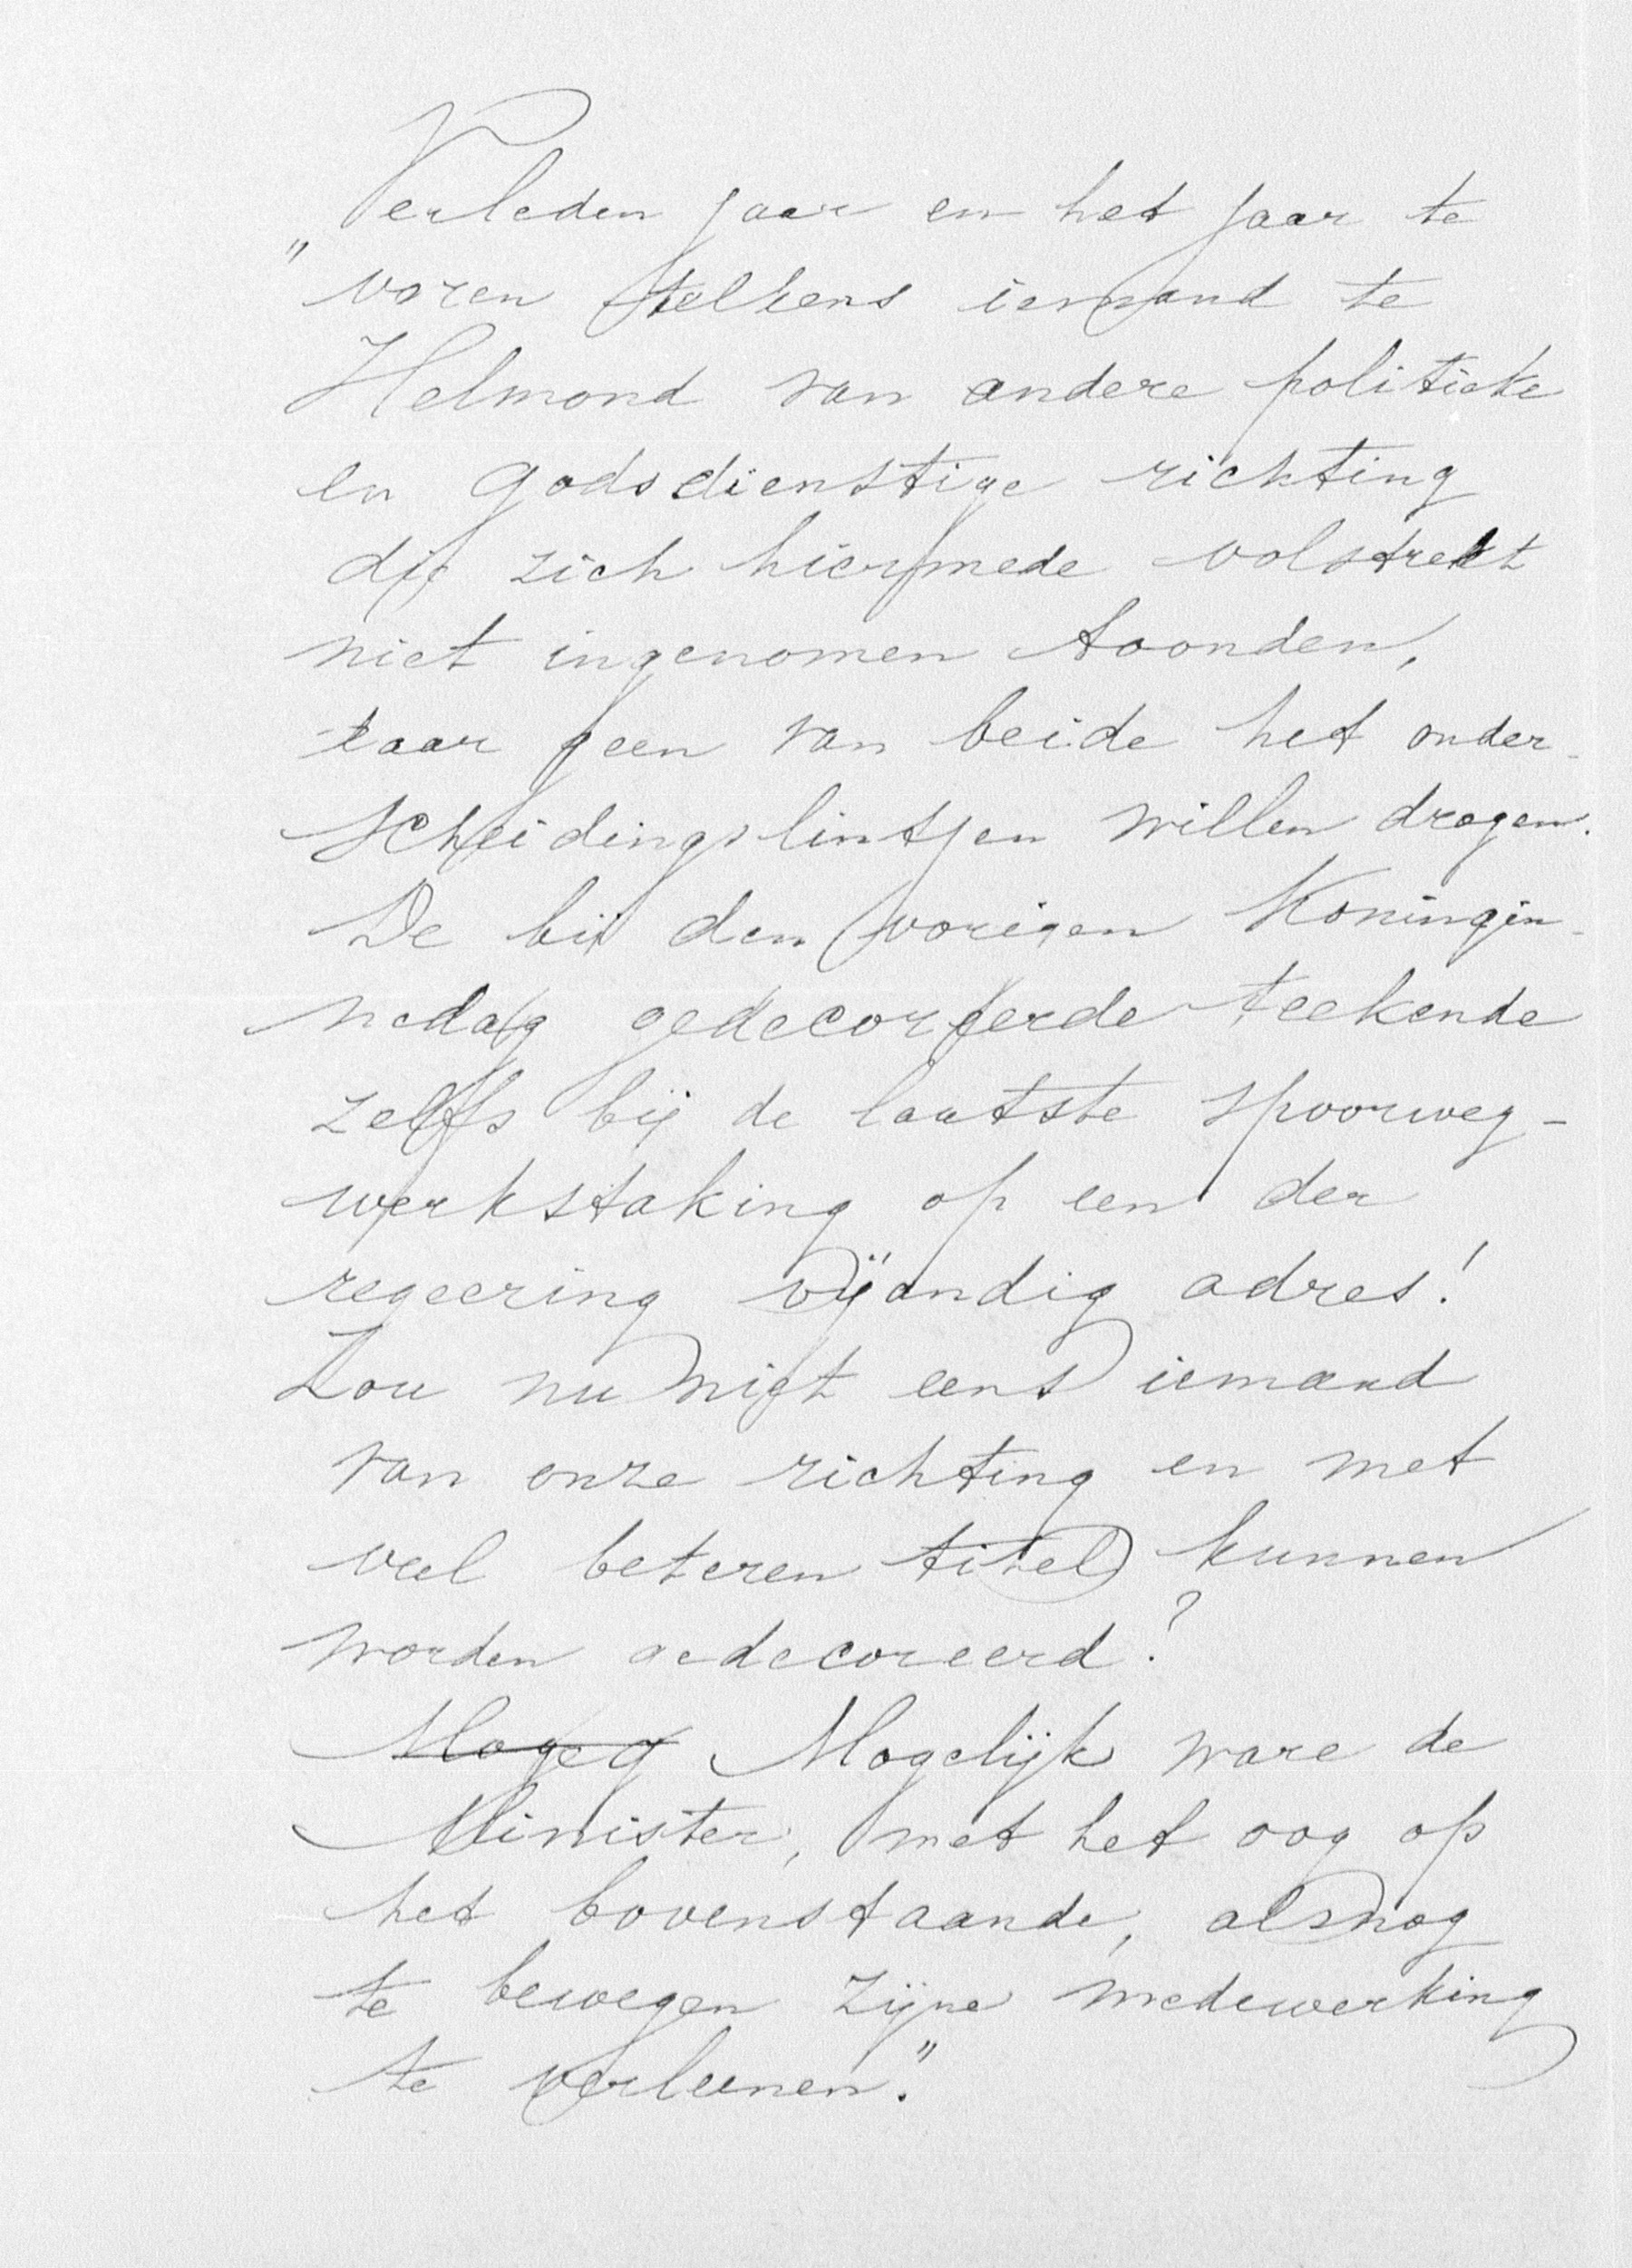 Verleden jaar en het jaar te
" voren telkens iemand te
Helmond van andere politieke
en godsdienstige richting
die zich hiermede volstrekt
niet ingenomen toonden,
daar geen van beide het onder-
scheidingslintjen willen dragen.
De bij den vorigen Koningin-
nedag gedecoreerde teekende
zelfs bij de laatste spoorweg-
werkstaking op een der
regeering vijandig adres!
Zou nu niet eens iemand
van onze richting en met
veel beteren titel kunnen
worden gedecoreerd?
Mogeg Mogelijk ware de
Minister, met het oog op
het bovenstaande, alsnog
te bewegen zijne medewerking
te verleenen."